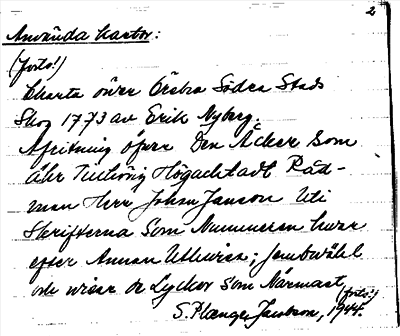 2
Använda kartor:
(forts!)
Charta öwer Östra Södra Stads
Skog 1773 av Erik Nyberg.
Afritning öfwer Den Åcker Som
Åhr Tillhörig Högachtadt Råd-
man Herr Johan Janson Uti
Skrifterna Som Nummeren hwar
efter Annan Uthwisa; Jembwähl
ock wisar de Lyckor Som Närmast
(forts!)
S. Planger Jacobson, 1944.